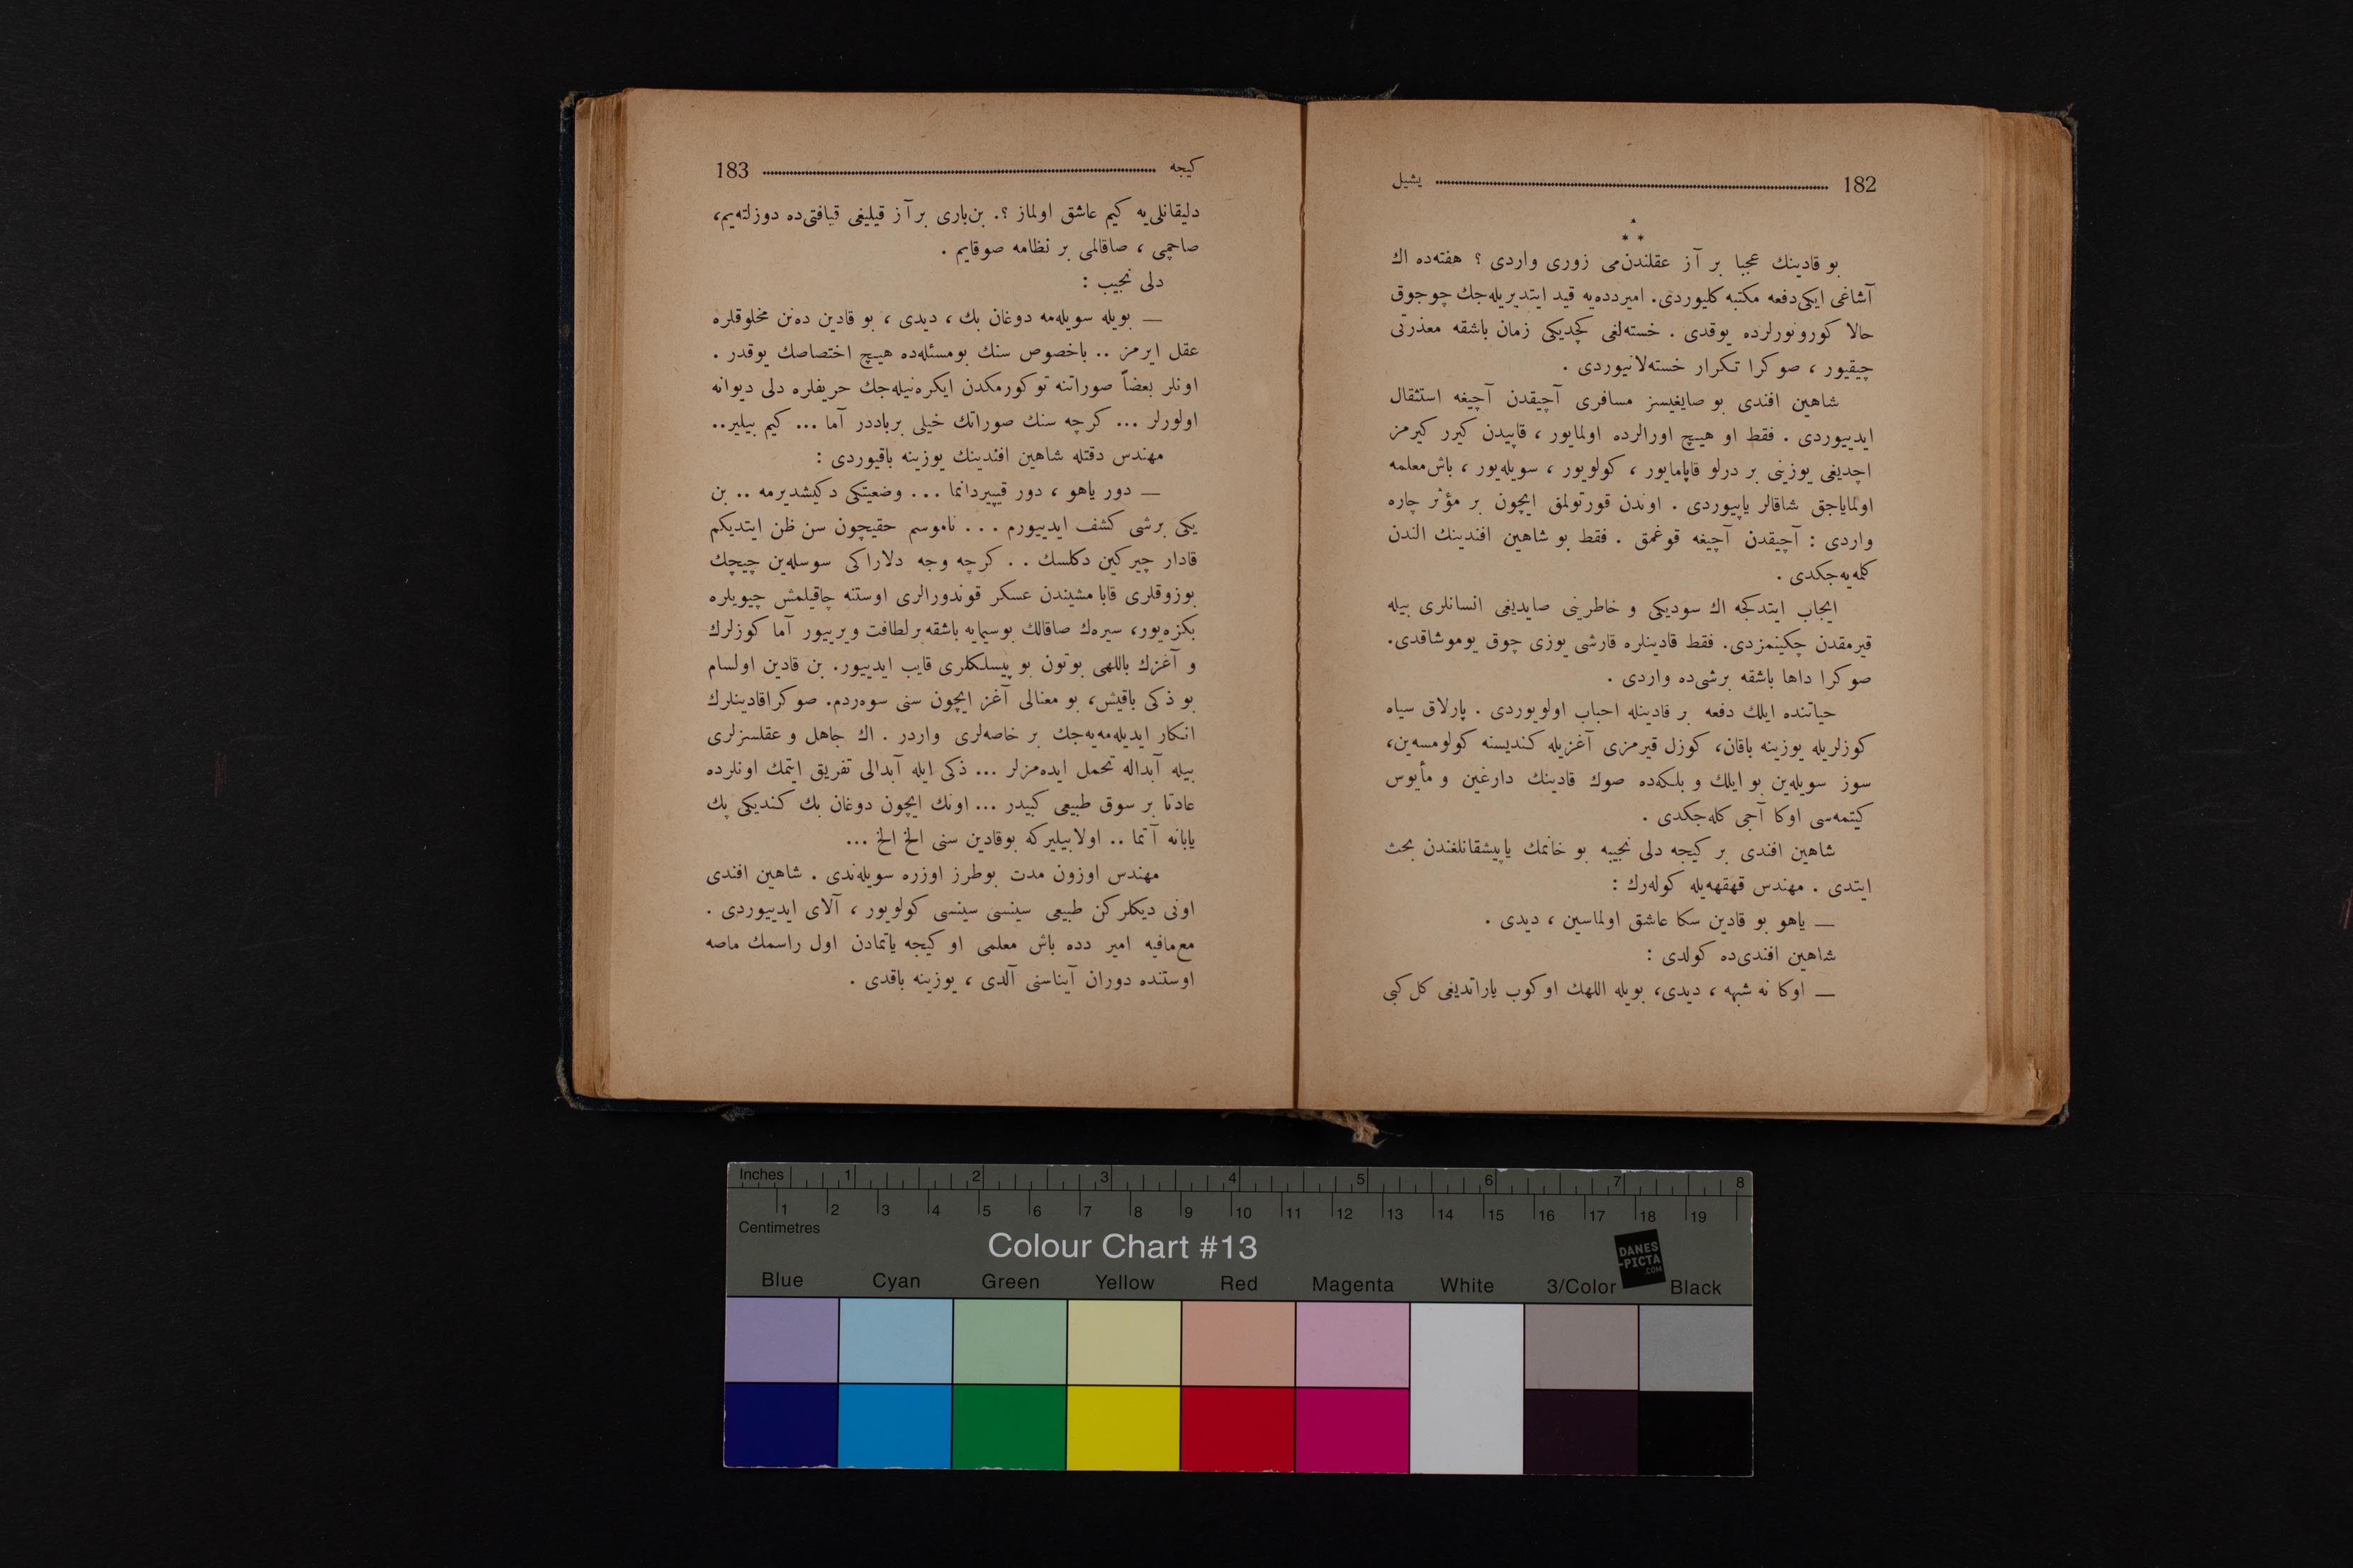 182 یشیل
بو قادینك عجبا بر آز عقلندن‌می زوری واردی ؟ هفته‌ده اك
آشاغی ایكی‌دفعه مكتبه كلیوردی. امیردده‌یه قید ایتدیریله‌جك چوجوق
حالا كورونورلرده یوقدی . خسته‌لغی كچدیكی زمان باشقه معذرتی
چیقیور ، صوكرا تكرار خسته‌لانیوردی .
شاهین افندی بو صایغیسز مسافری آچیقدن آچیغه استثقال
ایدییوردی . فقط او هیچ اورالرده اولمایور ، قاپیدن كیرر كیرمز
اچدیغی یوزینی بر درلو قاپامایور ، كولویور ، سویله‌یور ، باش‌معلمه
اولمایاجق شاقالر یاپیوردی . اوندن قورتولمق ایچون بر مؤثر چاره
واردی : آچیقدن آچیغه قوغمق . فقط بو شاهین افندینك الندن
كلمه‌یه‌جكدی .
ایجاب ایتدكجه اك سودیكی و خاطرینی صایدیغی انسانلری بیله
قیرمقدن چكینمزدی. فقط قادینلره قارشی یوزی چوق یوموشاقدی.
صوكرا داها باشقه برشی‌ده واردی .
حیاتنده ایلك دفعه بر قادینله احباب اولویوردی . پارلاق سیاه
كوزلریله یوزینه باقان، كوزل قیرمزی آغزیله كندیسنه كولومسه‌ین،
سوز سویله‌ین بو ایلك و بلكه‌ده صوك قادینك دارغین و مأیوس
كیتمه‌سی اوكا آجی كله‌جكدی .
شاهین افندی بر كیجه دلی نجیبه بو خانمك یاپیشقانلغندن بحث
ایتدی . مهندس قهقهه‌یله كوله‌رك :
— یاهو بو قادین سكا عاشق اولماسین ، دیدی .
شاهین افندی‌ده كولدی :
— اوكا نه شبهه ، دیدی، بویله اللهك اوكوب یاراتدیغی كل كبی
كیجه 183
دلیقانلی‌یه كیم عاشق اولماز ؟. بن‌باری بر آز قیلیغی قیافتی‌ده دوزلته‌یم،
صاچمی ، صاقالمی بر نظامه صوقایم .
دلی نجیب :
— بویله سویله‌مه دوغان بك ، دیدی ، بو قادین ده‌نن مخلوقلره
عقل ایرمز .. باخصوص سنك بومسئله‌ده هیچ اختصاصك یوقدر .
اونلر بعضاً صوراتنه توكورمكدن ایكره‌نیله‌جك حریفلره دلی دیوانه
اولورلر ... كرچه سنك صوراتك خیلی برباددر آما ... كیم بیلیر..
مهندس دقتله شاهین افندینك یوزینه باقیوردی :
— دور یاهو ، دور قیپیردانما ... وضعیتكی دكیشدیرمه .. بن
یكی برشی كشف ایدییورم ... ناموسم حقیچون سن ظن ایتدیكم
قادار چیركین دكلسك .. كرچه وجه دلاراكی سوسله‌ین چیچك
بوزوقلری قابا مشیندن عسكر قوندورالری اوستنه چاقیلمش چیویلره
بكزه‌یور، سیره‌ك صاقالك بوسیمایه باشقه‌برلطافت ویرییور آما كوزلرك
و آغزك باللهی بوتون بو پیسلكلری قایب ایدییور. بن قادین اولسام
بو ذكی باقیش، بو معنالی آغز ایچون سنی سوه‌ردم. صوكراقادینلرك
انكار ایدیله‌مه‌یه‌جك بر خاصه‌لری واردر . اك جاهل و عقلسزلری
بیله آبداله تحمل ایده‌مزلر ... ذكی ایله آبدالی تفریق ایتمك اونلرده
عادتا بر سوق طبیعی كبیدر ... اونك ایچون دوغان بك كندیكی پك
یابانه آتما .. اولابیلیركه بوقادین سنی الخ الخ ...
مهندس اوزون مدت بوطرز اوزره سویله‌ندی . شاهین افندی
اونی دیكلركن طبیعی سینسی سینسی كولویور ، آلای ایدییوردی .
مع‌مافیه امیر دده باش معلمی او كیجه یاتمادن اول راسمك ماصه
اوستنده دوران آیناسنی آلدی ، یوزینه باقدی .
Inches 1 2 3 4 5 6 7 8
1 2 3 4 5 6 7 8 9 10 11 12 13 14 15 16 17 18 19
Centimetres
Colour Chart #13
DANES
-PICTA
.COM
Blue Cyan Green Yellow Red Magenta White 3/Color Black